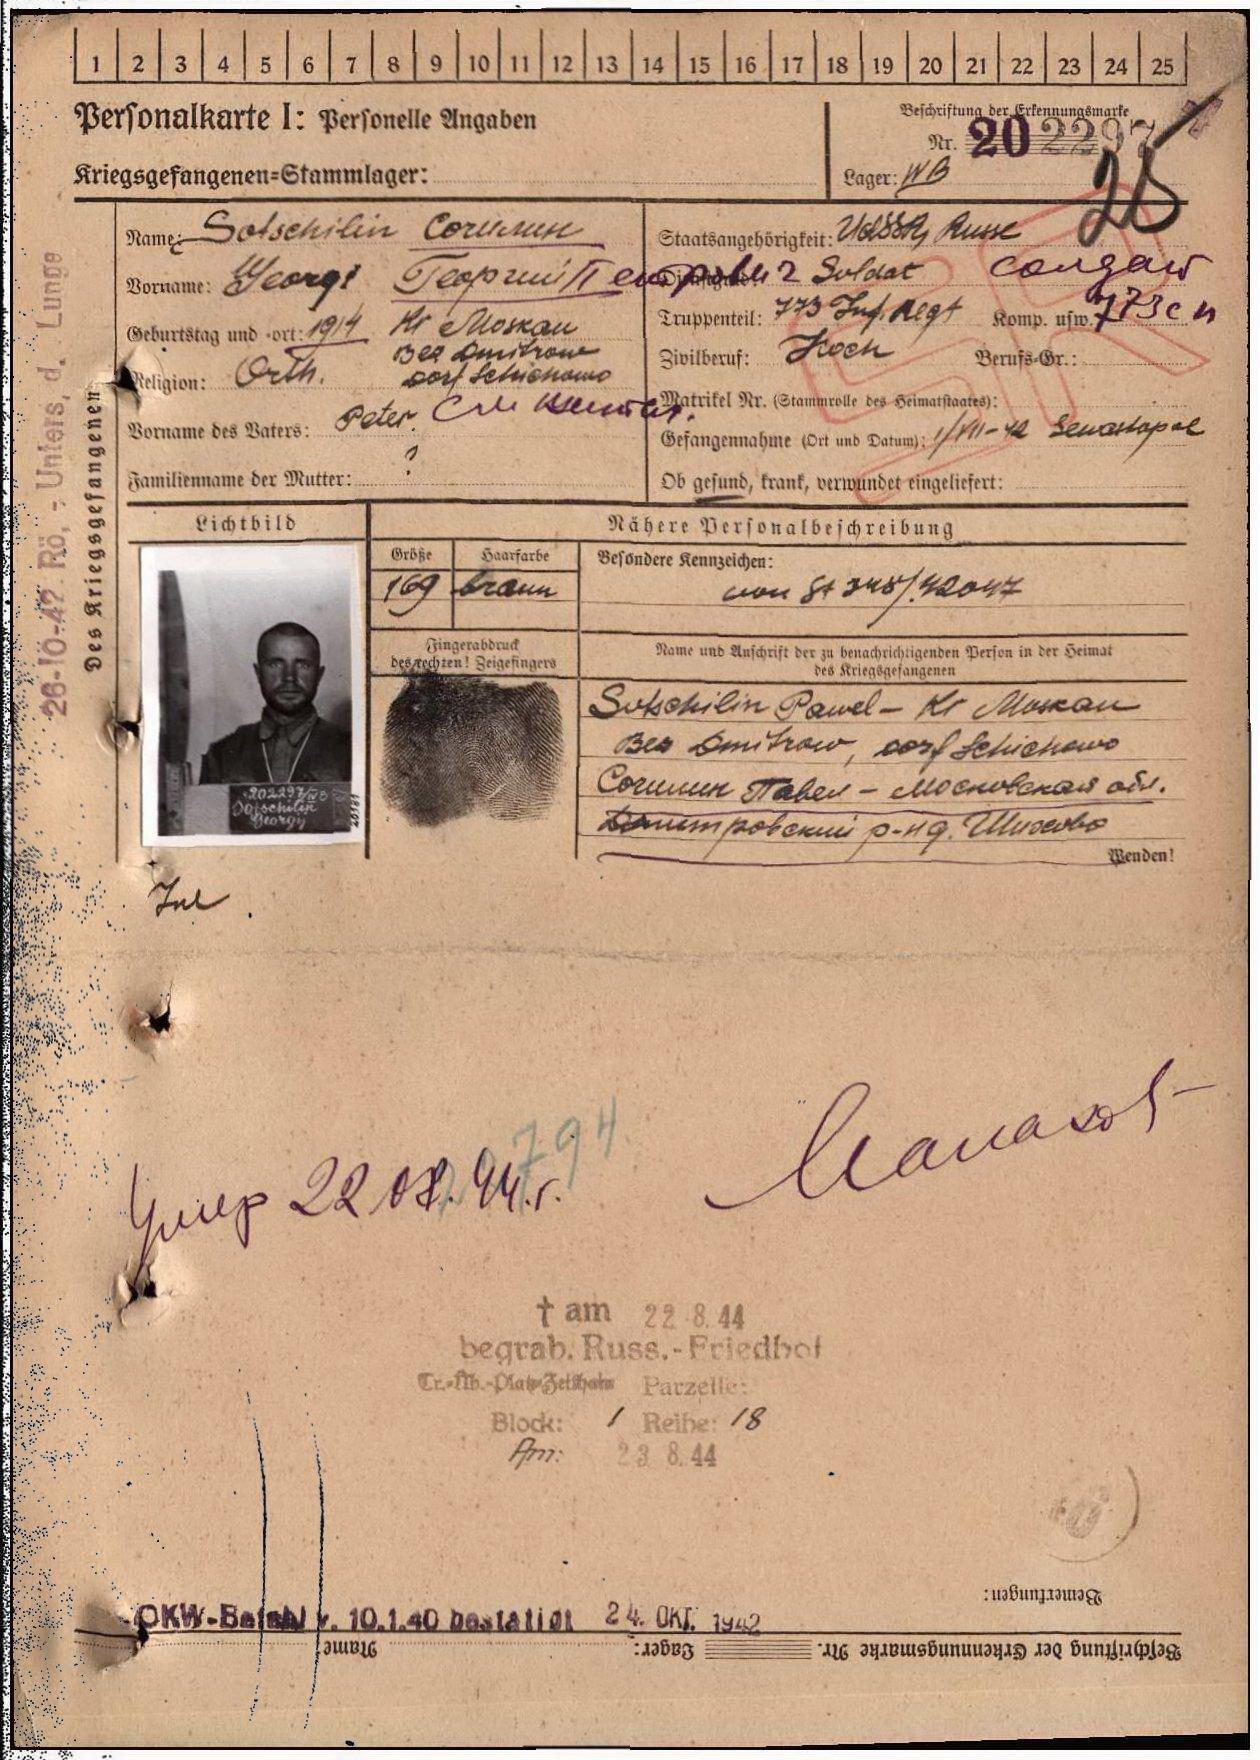 1 2 3 4 5 6 7 8 9 10 11 12 13 14 15 16 17 18 19 20 21 22 23 24 25
Personalkarte I: Personelle Angaben
Kriegsgefangenen=Stammlager:
Beschriftung der Erkennungsmarke
Nr. 202297
Lager: IVB
25
Des Kriegsgefangenen
26-10-42 Rö,- Unters, d. Lunge
Name: Sotschilin Сочилин
Vorname: Georgi Георгий Петрович
Geburtstag und -ort: 1914 Kr Moskau
Bez Dmitrow
Dorf Schichowo
Religion: Orth.
Vorname des Vaters: Peter.
Familienname der Mutter: ?
Staatsangehörigkeit: UdSSR, Russe
Dienstgrad: Soldat солдат
Truppenteil: 773 Inf. Regt Komp. usw. 773 сп
Zivilberuf: Koch Berufs-Gr.:
Matrikel Nr. (Stammrolle des Heimatstaates):
Gefangennahme (Ort und Datum): 1/VII-42 Sewastopol
Ob gesund, krank, verwundet eingeliefert:
Lichtbild
Nähere Personalbeschreibung
Größe Haarfarbe
169 braun
Besondere Kennzeichen:
von St 348/42047
Fingerabdruck
des rechten! Zeigefingers
Name und Anschrift der zu benachrichtigenden Person in der Heimat
des Kriegsgefangenen
Sotschilin Pawel – Kr Moskau
Bez Dmitrow, Dorf Schichowo
Сочилин Павел – Московская обл.
Дмитровский р-н д. Шихово
Wenden!
202297/IVB
Sotschilin
Georgy
Умер 22.08.44.г.
794
† am 22 8. 44
begrab. Russ.-Friedhof
Tr.=Üb.-Platz=Zeithain Parzelle:
Block: 1 Reihe: 18
Am: 23 8. 44
Bemerkungen:
OKW-Befehl v. 10.1.40 bestätigt 24. OKT. 1942
Beschriftung der Erkennungsmarke Nr. Lager: Name